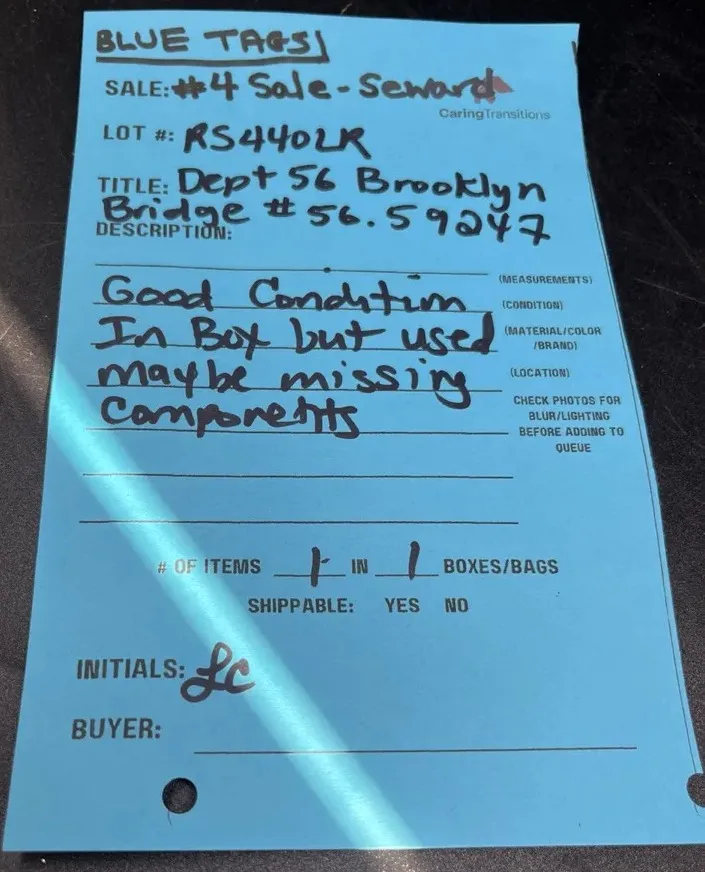 BLUE TAGS
SALE: #4 Sale - Seward
CaringTransitions
LOT #: RS440LR
TITLE: Dept 56 Brooklyn
Bridge # 56.59247
DESCRIPTION:
(MEASUREMENTS)
Good Condition (CONDITION)
In Box but used (MATERIAL/COLOR
/BRAND)
maybe missing (LOCATION)
Components CHECK PHOTOS FOR
BLUR/LIGHTING
BEFORE ADDING TO
QUEUE
# OF ITEMS 1 IN 1 BOXES/BAGS
SHIPPABLE: YES NO
INITIALS: LC
BUYER: